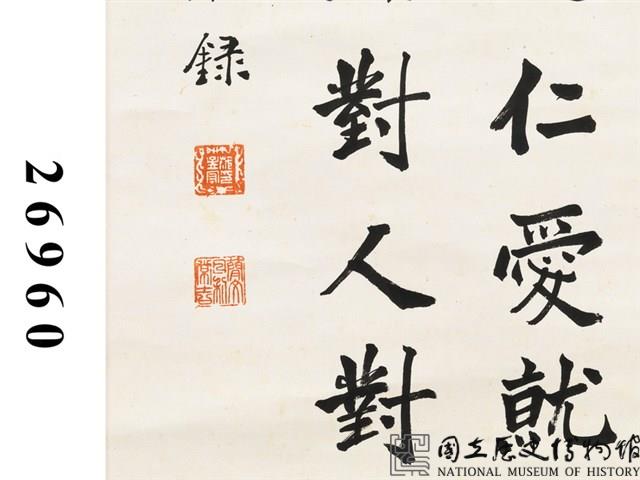 仁愛就
對人對
錄
26960
國立歷史博物館
NATIONAL MUSEUM OF HISTORY